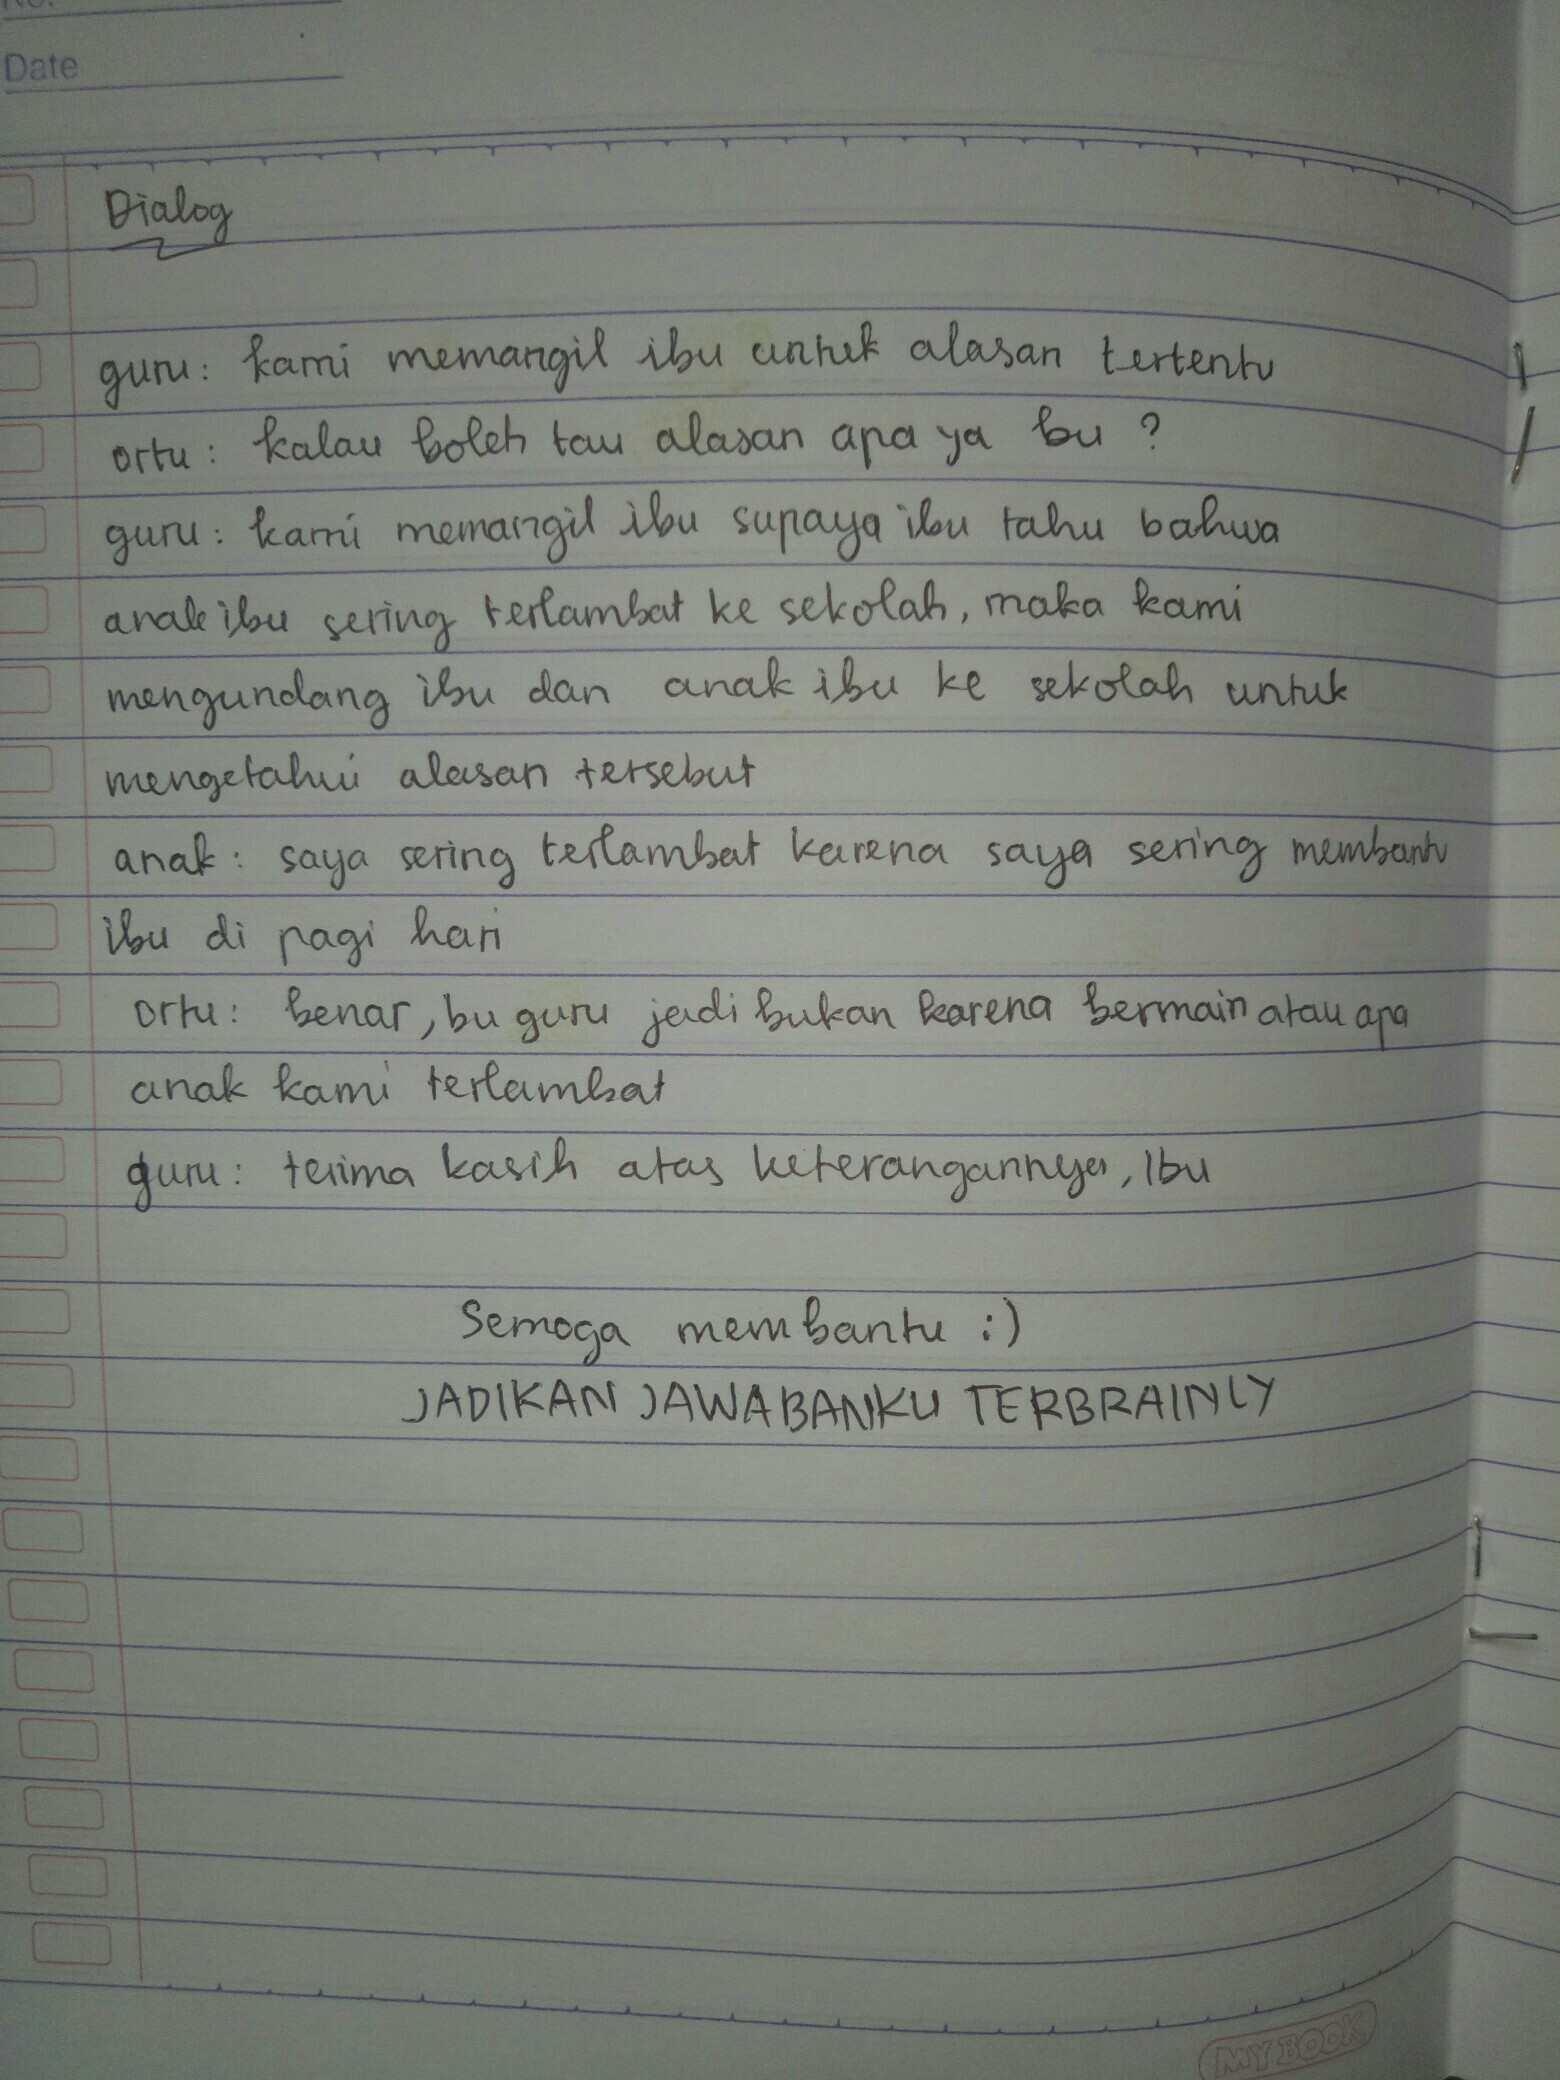 No.
Date
Dialog
guru: kami memangil ibu untuk alasan tertentu
ortu: kalau boleh tau alasan apa ya bu ?
guru: kami memangil ibu supaya ibu tahu bahwa
anak ibu sering terlambat ke sekolah, maka kami
mengundang ibu dan anak ibu ke sekolah untuk
mengetahui alasan tersebut
anak: saya sering terlambat karena saya sering membantu
ibu di pagi hari
ortu: benar, bu guru jadi bukan karena bermain atau apa
anak kami terlambat
guru: terima kasih atas keterangannya, Ibu
Semoga membantu :)
JADIKAN JAWABANKU TERBRAINLY
MY BOOK